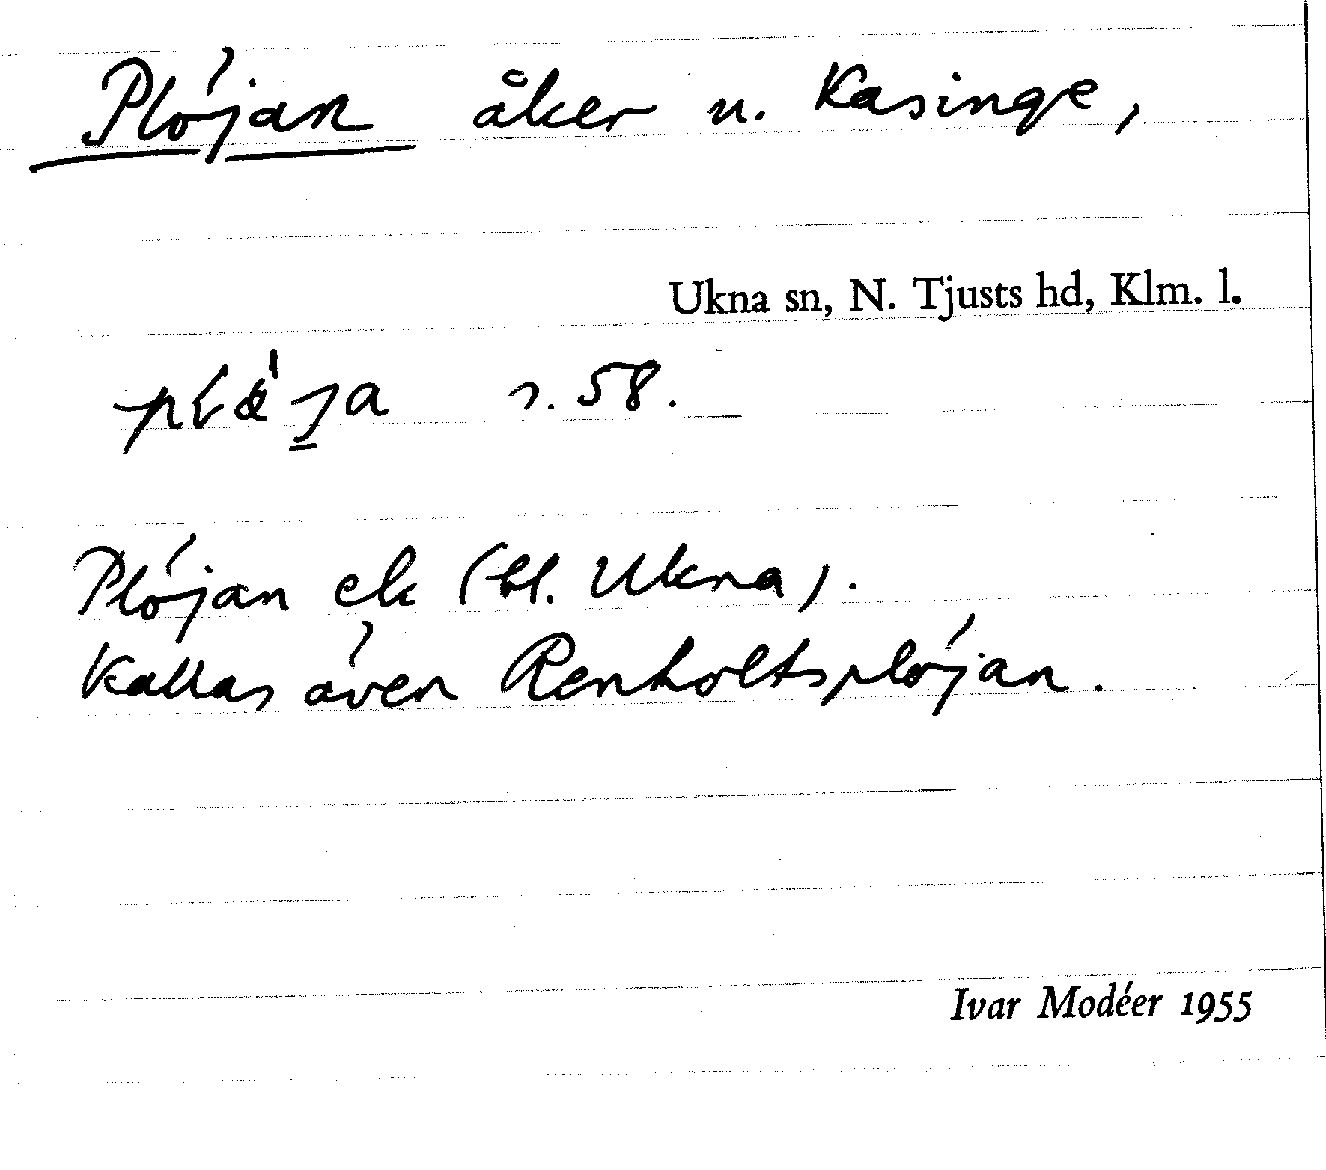 Plöjan åker u. Kasinge,
Ukna sn, N. Tjusts hd, Klm. l.
s. 58.
Plöjan ek (bl. Ukna).
Kallas även Renholtsplöjan.
Ivar Modéer 1955